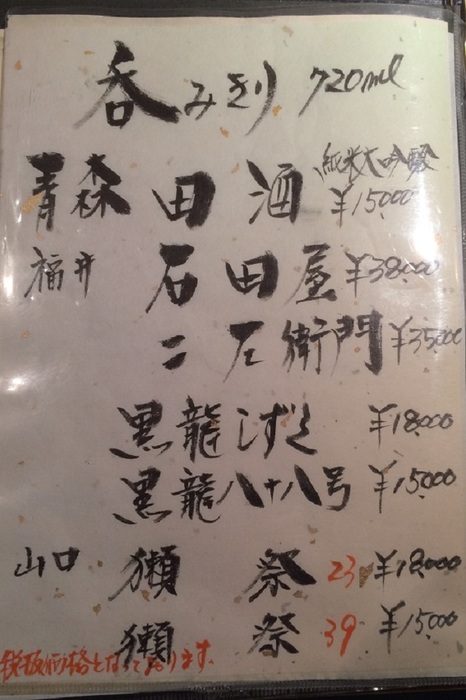 呑みきり 720ml
青森 田酒 純米大吟醸 ¥15,000
福井 石田屋 ¥38,000
二左衛門 ¥35,000
黒龍しずく ¥18,000
黒龍八十八号 ¥15,000
山口 獺祭 23 ¥18,000
獺祭 39 ¥15,000
税抜価格となっております。